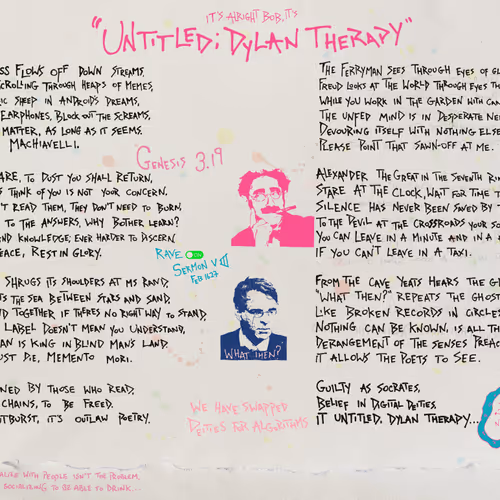 IT'S ALRIGHT BOB, IT'S
"UNTITLED; DYLAN THERAPY"
SS FLOWS OFF DOWN STREAMS,
CROLLING THROUGH HEAPS OF MEMES,
IC SHEEP IN ANDROIDS DREAMS,
EARPHONES, BLOCK OUT THE SCREAMS,
MATTER, AS LONG AS IT SEEMS.
MACHIAVELLI.
ARE, TO DUST YOU SHALL RETURN,
THINK OF YOU IS NOT YOUR CONCERN.
T READ THEM, THEY DON'T NEED TO BURN
TO THE ANSWERS, WHY BOTHER LEARN?
ND KNOWLEDGE, EVER HARDER TO DISCERN
EACE, REST IN GLORY.
SHRUGS ITS SHOULDERS AT MS RAND,
TS THE SEA BETWEEN STARS AND SAND,
D TOGETHER IF THERES NO RIGHT WAY TO STAND,
LABEL DOESN'T MEAN YOU UNDERSTAND,
AN IS KING IN BLIND MAN'S LAND,
UST DIE, MEMENTO MORI.
NED BY THOSE WHO READ,
CHAINS, TO BE FREED.
TBURST, IT'S OUTLAW POETRY.
ALISE WITH PEOPLE ISN'T THE PROBLEM,
SOCIALISING TO BE ABLE TO DRINK...
GENESIS 3.19
RAVE
SERMON V
FEB 1627
WHAT THEN?
WE HAVE SWAPPED
DEITIES FOR ALGORITHMS
THE FERRYMAN SEES THROUGH EYES OF GL
FREUD LOOKS AT THE WORLD THROUGH EYES TH
WHILE YOU WORK IN THE GARDEN WITH CAN
THE UNFED MIND IS IN DESPERATE NE
DEVOURING ITSELF WITH NOTHING ELSE
PLEASE POINT THAT SAWN-OFF AT ME.
ALEXANDER THE GREAT IN THE SEVENTH RIN
STARE AT THE CLOCK, WAIT FOR TIME T
SILENCE HAS NEVER BEEN SAVED BY T
TO THE DEVIL AT THE CROSSROADS YOUR SO
YOU CAN LEAVE IN A MINUTE AND IN A
IF YOU CAN'T LEAVE IN A TAXI.
FROM THE CAVE YEATS HEARS THE G
"WHAT THEN?" REPEATS THE GHOS
LIKE BROKEN RECORDS IN CIRCLES
NOTHING CAN BE KNOWN, IS ALL TH
DERANGEMENT OF THE SENSES PREAC
IT ALLOWS THE POETS TO SEE.
GUILTY AS SOCRATES,
BELIEF IN DIGITAL DEITIES,
IT UNTITLED, DYLAN THERAPY...